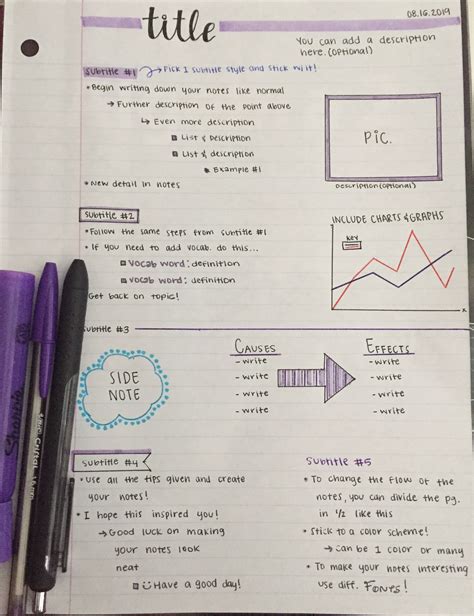 08.16.2019
title
You can add a description
here. (optional)
Subtitle #1 → Pick 1 subtitle style and stick w/ it!
• Begin writing down your notes like normal
→ Further description of the point above
↳ Even more description
List & Description
List & Description
• Example #1
• New detail in notes
PIC.
Description (optional)
Subtitle #2
• Follow the same steps from subtitle #1
• If you need to add vocab. do this...
Vocab word: definition
Vocab word: definition
Get back on topic!
INCLUDE CHARTS & GRAPHS
key
x
Subtitle #3
SIDE
NOTE
CAUSES
- write
- write
- write
- write
EFFECTS
- write
- write
- write
- write
Subtitle #4
• Use all the tips given and create
your notes!
• I hope this inspired you!
→ Good luck on making
your notes look
neat
Have a good day!
Subtitle #5
• To change the flow of the
notes, you can divide the pg.
in 1/2 like this
• Stick to a color scheme!
→ Can be 1 color or many
• To make your notes interesting
use diff. FONTS!
Sharpie